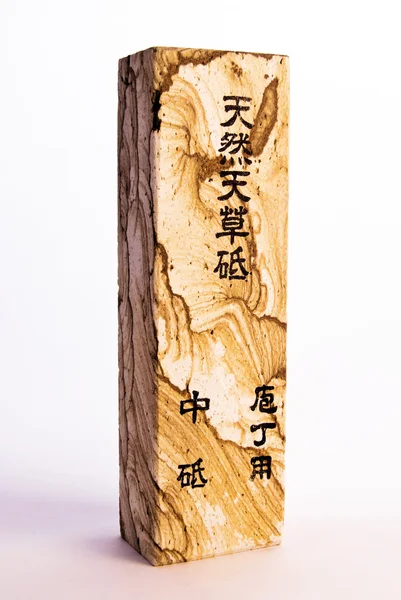 天然天草砥
庖丁用
中砥